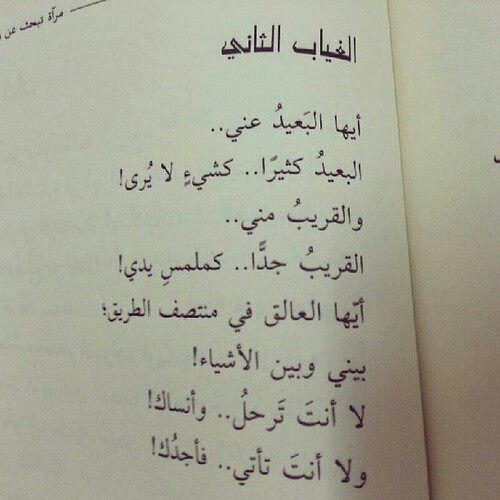 مرآة تبحث عن
الغياب الثاني
أيها البَعيدُ عني..
البعيدُ كثيرًا.. كشيءٍ لا يُرى!
والقريبُ مني..
القريبُ جدًّا.. كملمسِ يدي!
أيّها العالق في منتصف الطريق؛
بيني وبين الأشياء!
لا أنتَ تَرحلُ.. وأنساك!
ولا أنتَ تأتي.. فأجدُك!